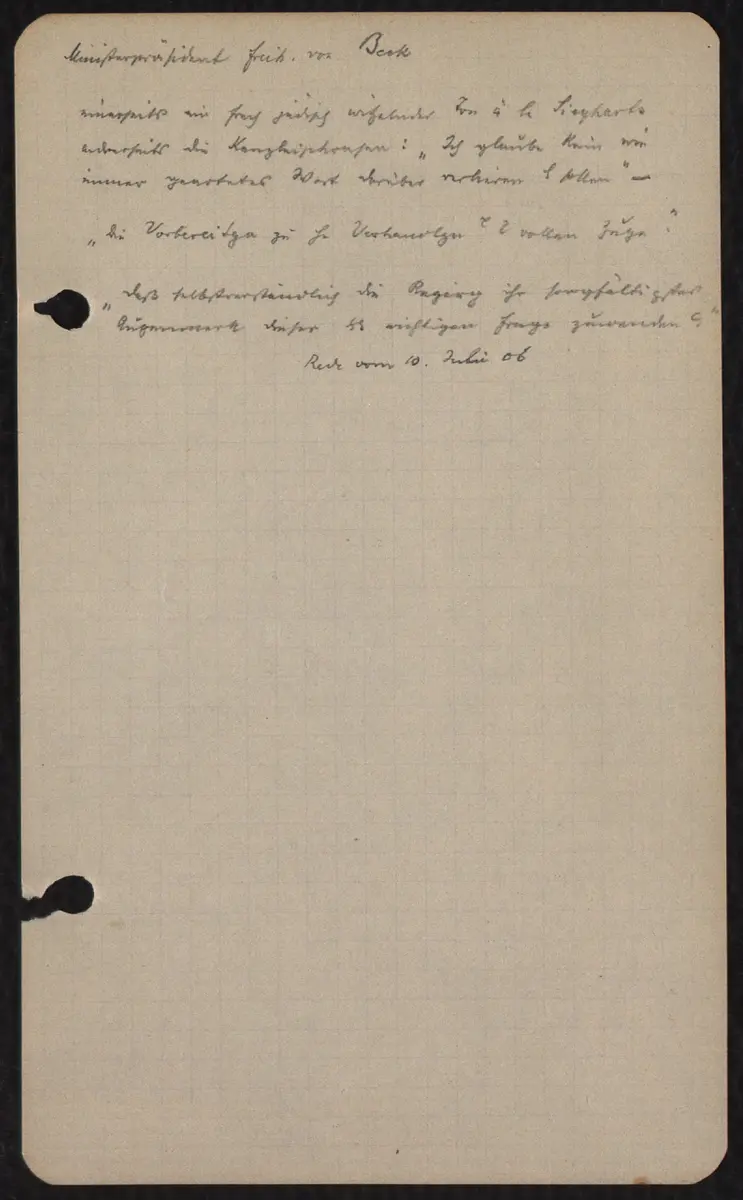 Ministerpräsident Freih. von Beck
einerseits ein frech jüdisch witzelnder Ton à la Sieghart
anderseits die Kanzleiphrasen: „Ich glaube kein wie
immer geartetes Wort darüber verlieren zu sollen“ —
„die Vorbereitga zu Verhandlgn vollen Zuge.“
„daß selbstverständlich die Regierg ihr sorgfältigstes
Augenmerk dieser wichtigen Frage zuwenden
Rede vom 10. Juli 06